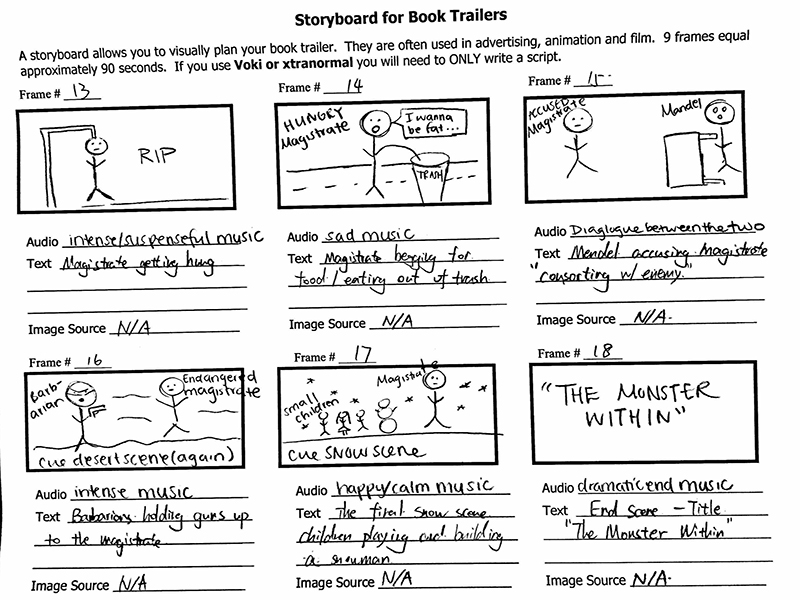 Storyboard for Book Trailers
A storyboard allows you to visually plan your book trailer. They are often used in advertising, animation and film. 9 frames equal
approximately 90 seconds. If you use Voki or xtranormal you will need to ONLY write a script.
Frame # 13
RIP
Audio intense/suspenseful music
Text Magistrate getting hung
Image Source N/A
Frame # 14
HUNGRY
Magistrate
I wanna
be fat...
TRASH
Audio sad music
Text Magistrate begging for
food / eating out of trash
Image Source N/A
Frame # 15
ACCUSED
Magistrate
Mandel
Audio Diaglogue between the two
Text Mendel accusing Magistrate
"consorting w/ enemy."
Image Source N/A.
Frame # 16
Barb-
arian
Endangered
magistrate
cue desert scene (again)
Audio intense music
Text Barbarians holding guns up
to the magistrate
Image Source N/A
Frame # 17
small
children
Magistrate
cue snow scene
Audio happy/calm music
Text The final snow scene
children playing and building
a snowman
Image Source N/A
Frame # 18
"THE MONSTER
WITHIN"
Audio dramatic end music
Text End Scene - Title
"The Monster Within"
Image Source N/A.